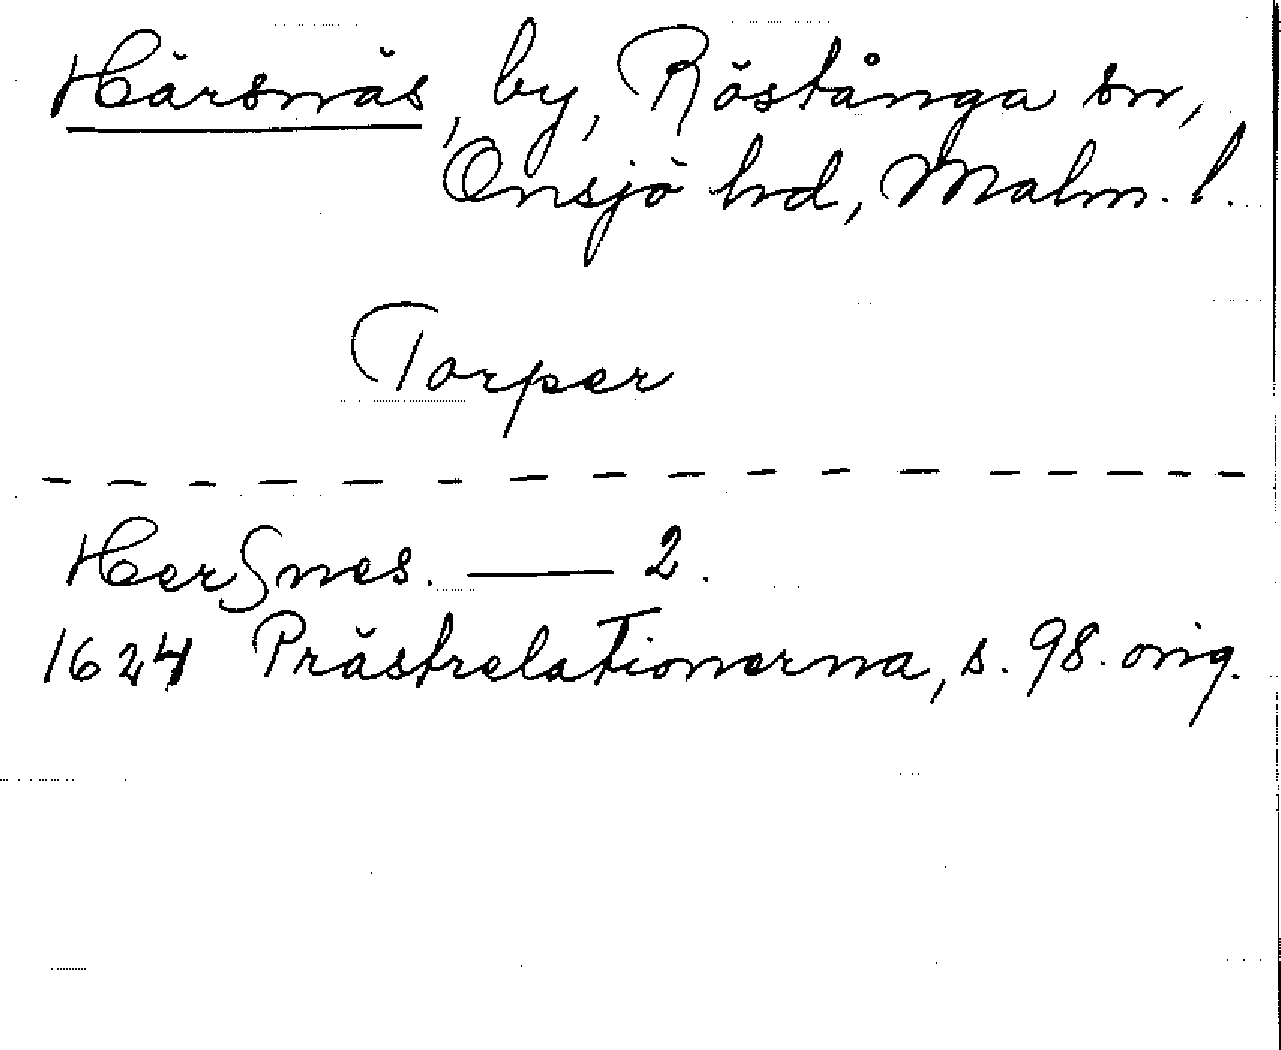 Härsnäs, by, Röstånga sn,
Onsjö hd, Malm. l.
Torper
Herſnes. — 2.
1624 Prästrelationerna, s. 98. orig.